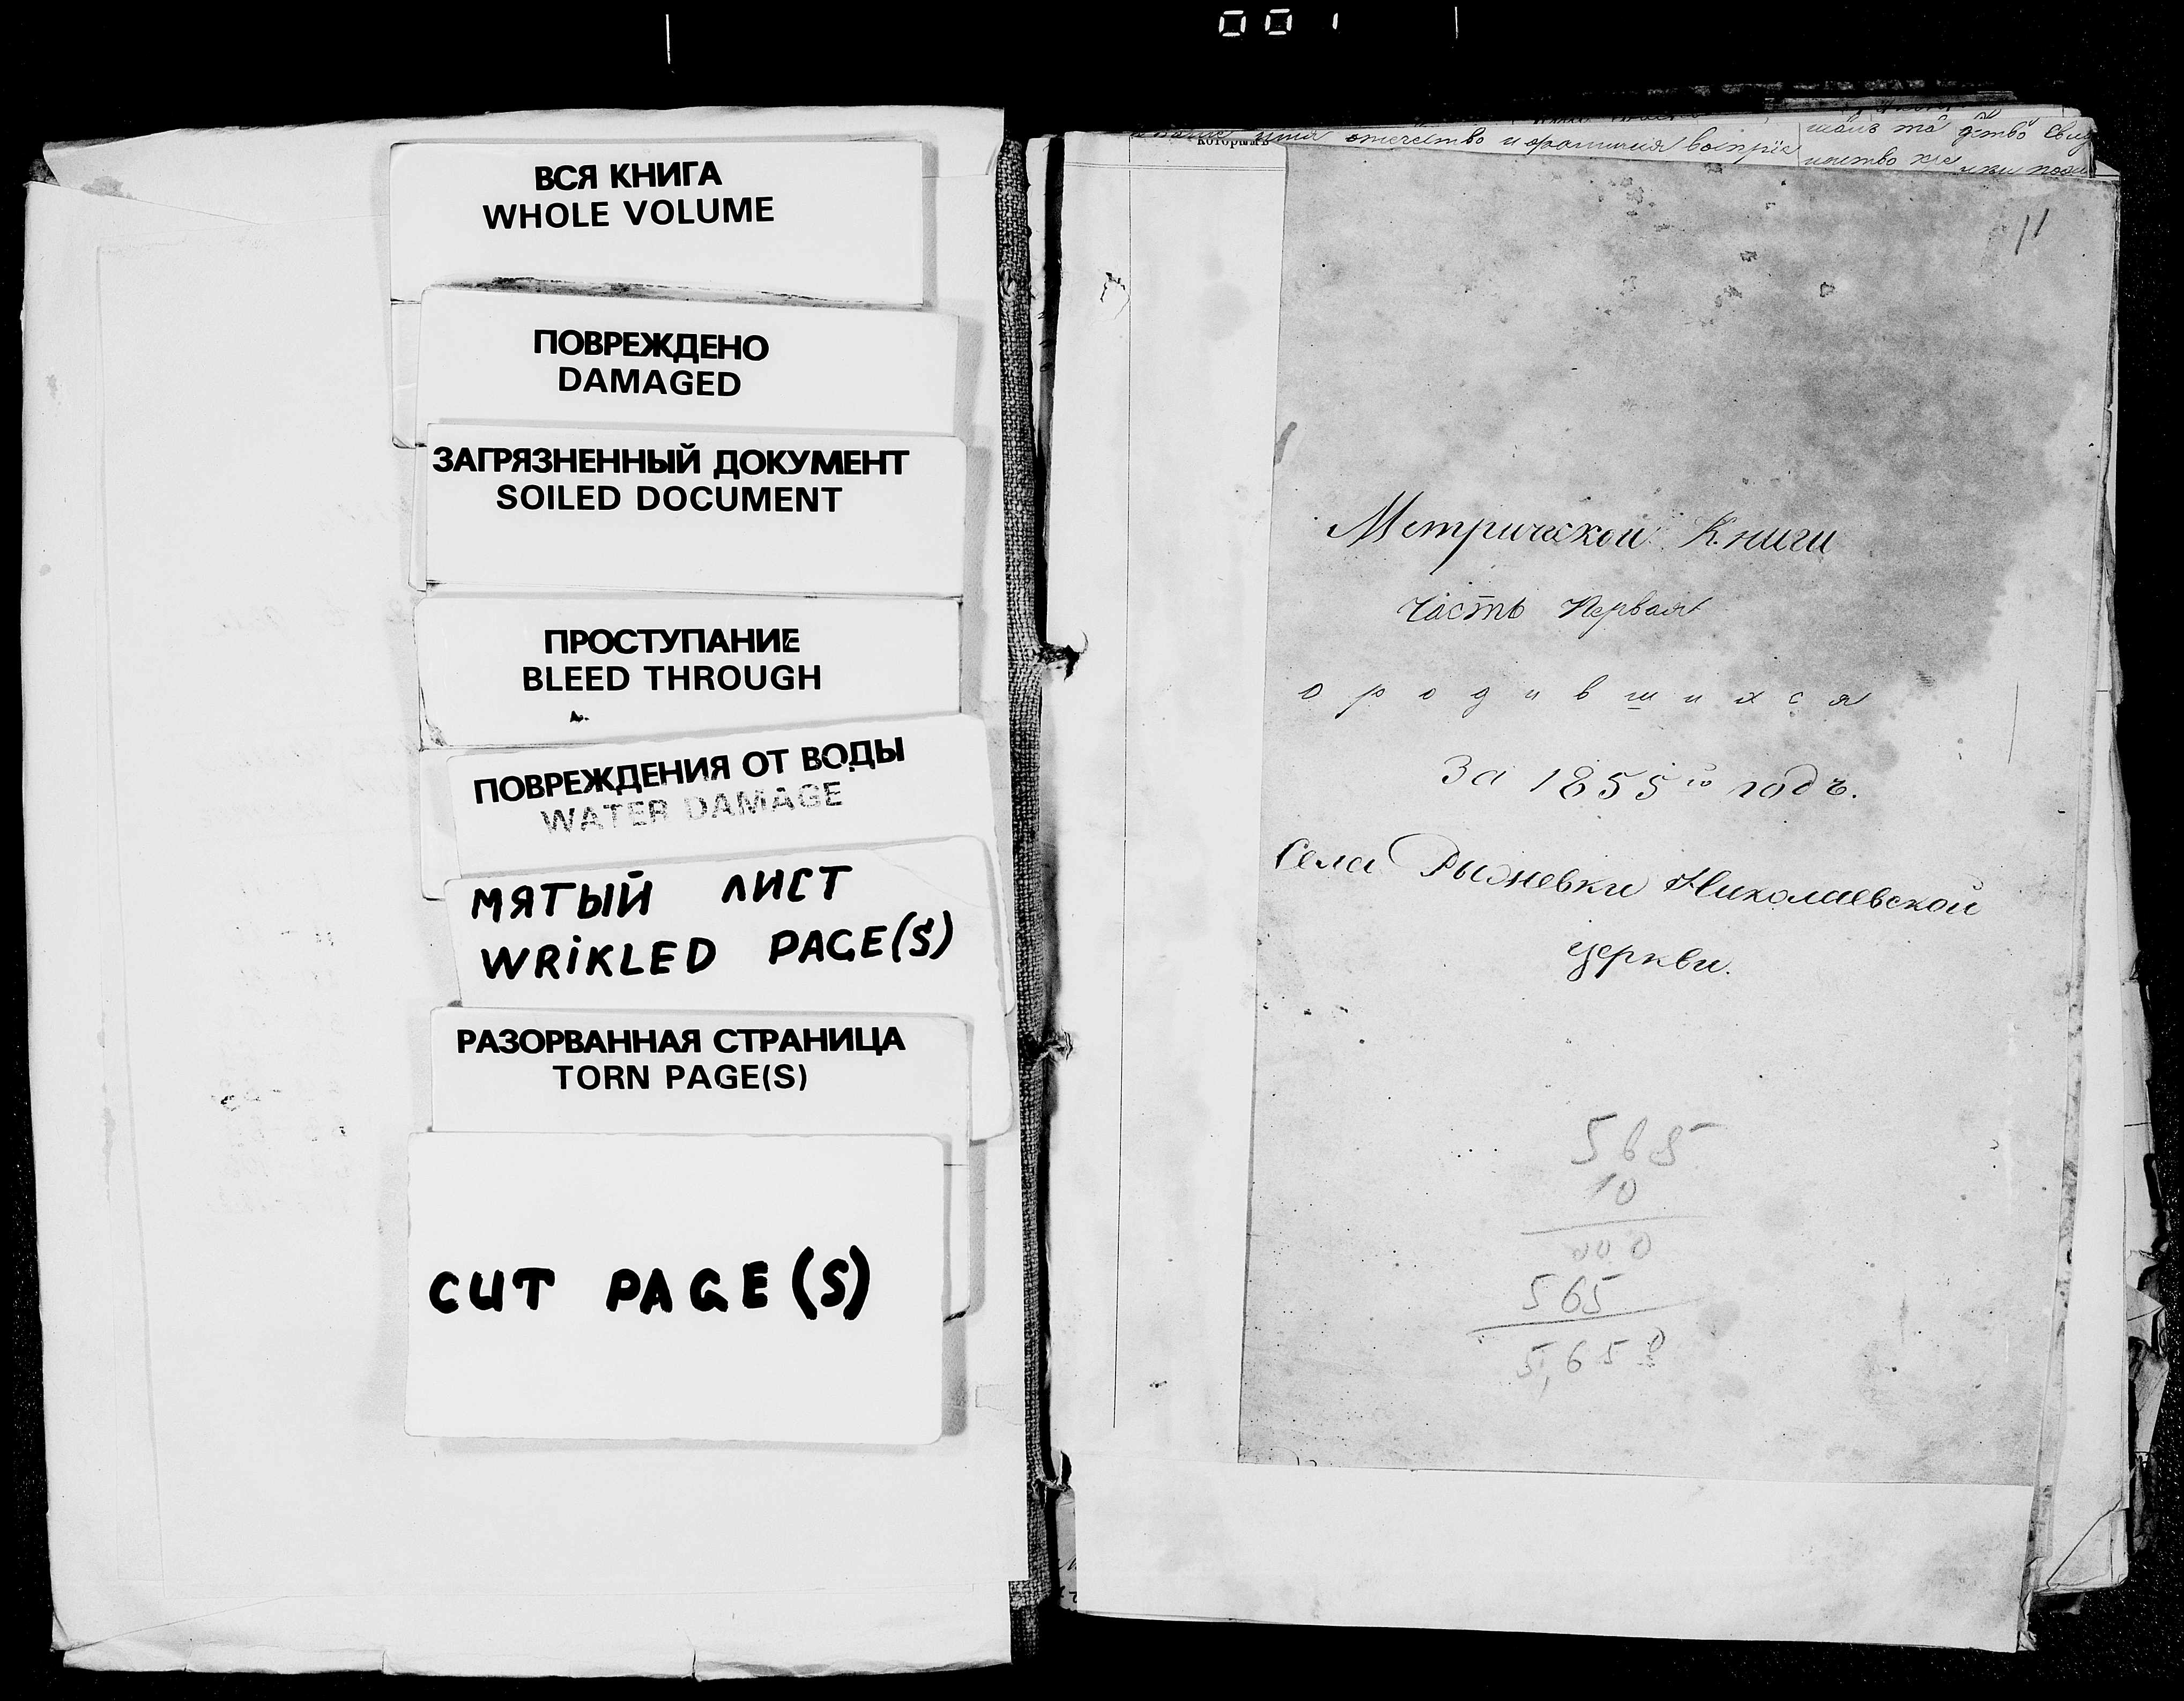 001
ВСЯ КНИГА
WHOLE VOLUME
ПОВРЕЖДЕНО
DAMAGED
ЗАГРЯЗНЕННЫЙ ДОКУМЕНТ
SOILED DOCUMENT
ПРОСТУПАНИЕ
BLEED THROUGH
ПОВРЕЖДЕНИЯ ОТ ВОДЫ
WATER DAMAGE
МЯТЫЙ ЛИСТ
WRIKLED PAGE(S)
РАЗОРВАННАЯ СТРАНИЦА
TORN PAGE(S)
CUT PAGE(S)
имя отчество и фамилия воспріе
которымъ
Метрической Книги
часть Первая
о родившихся
За 1855й годъ.
Села Рыжевки Николаевской
церкви.
565
10
000
565
5,650